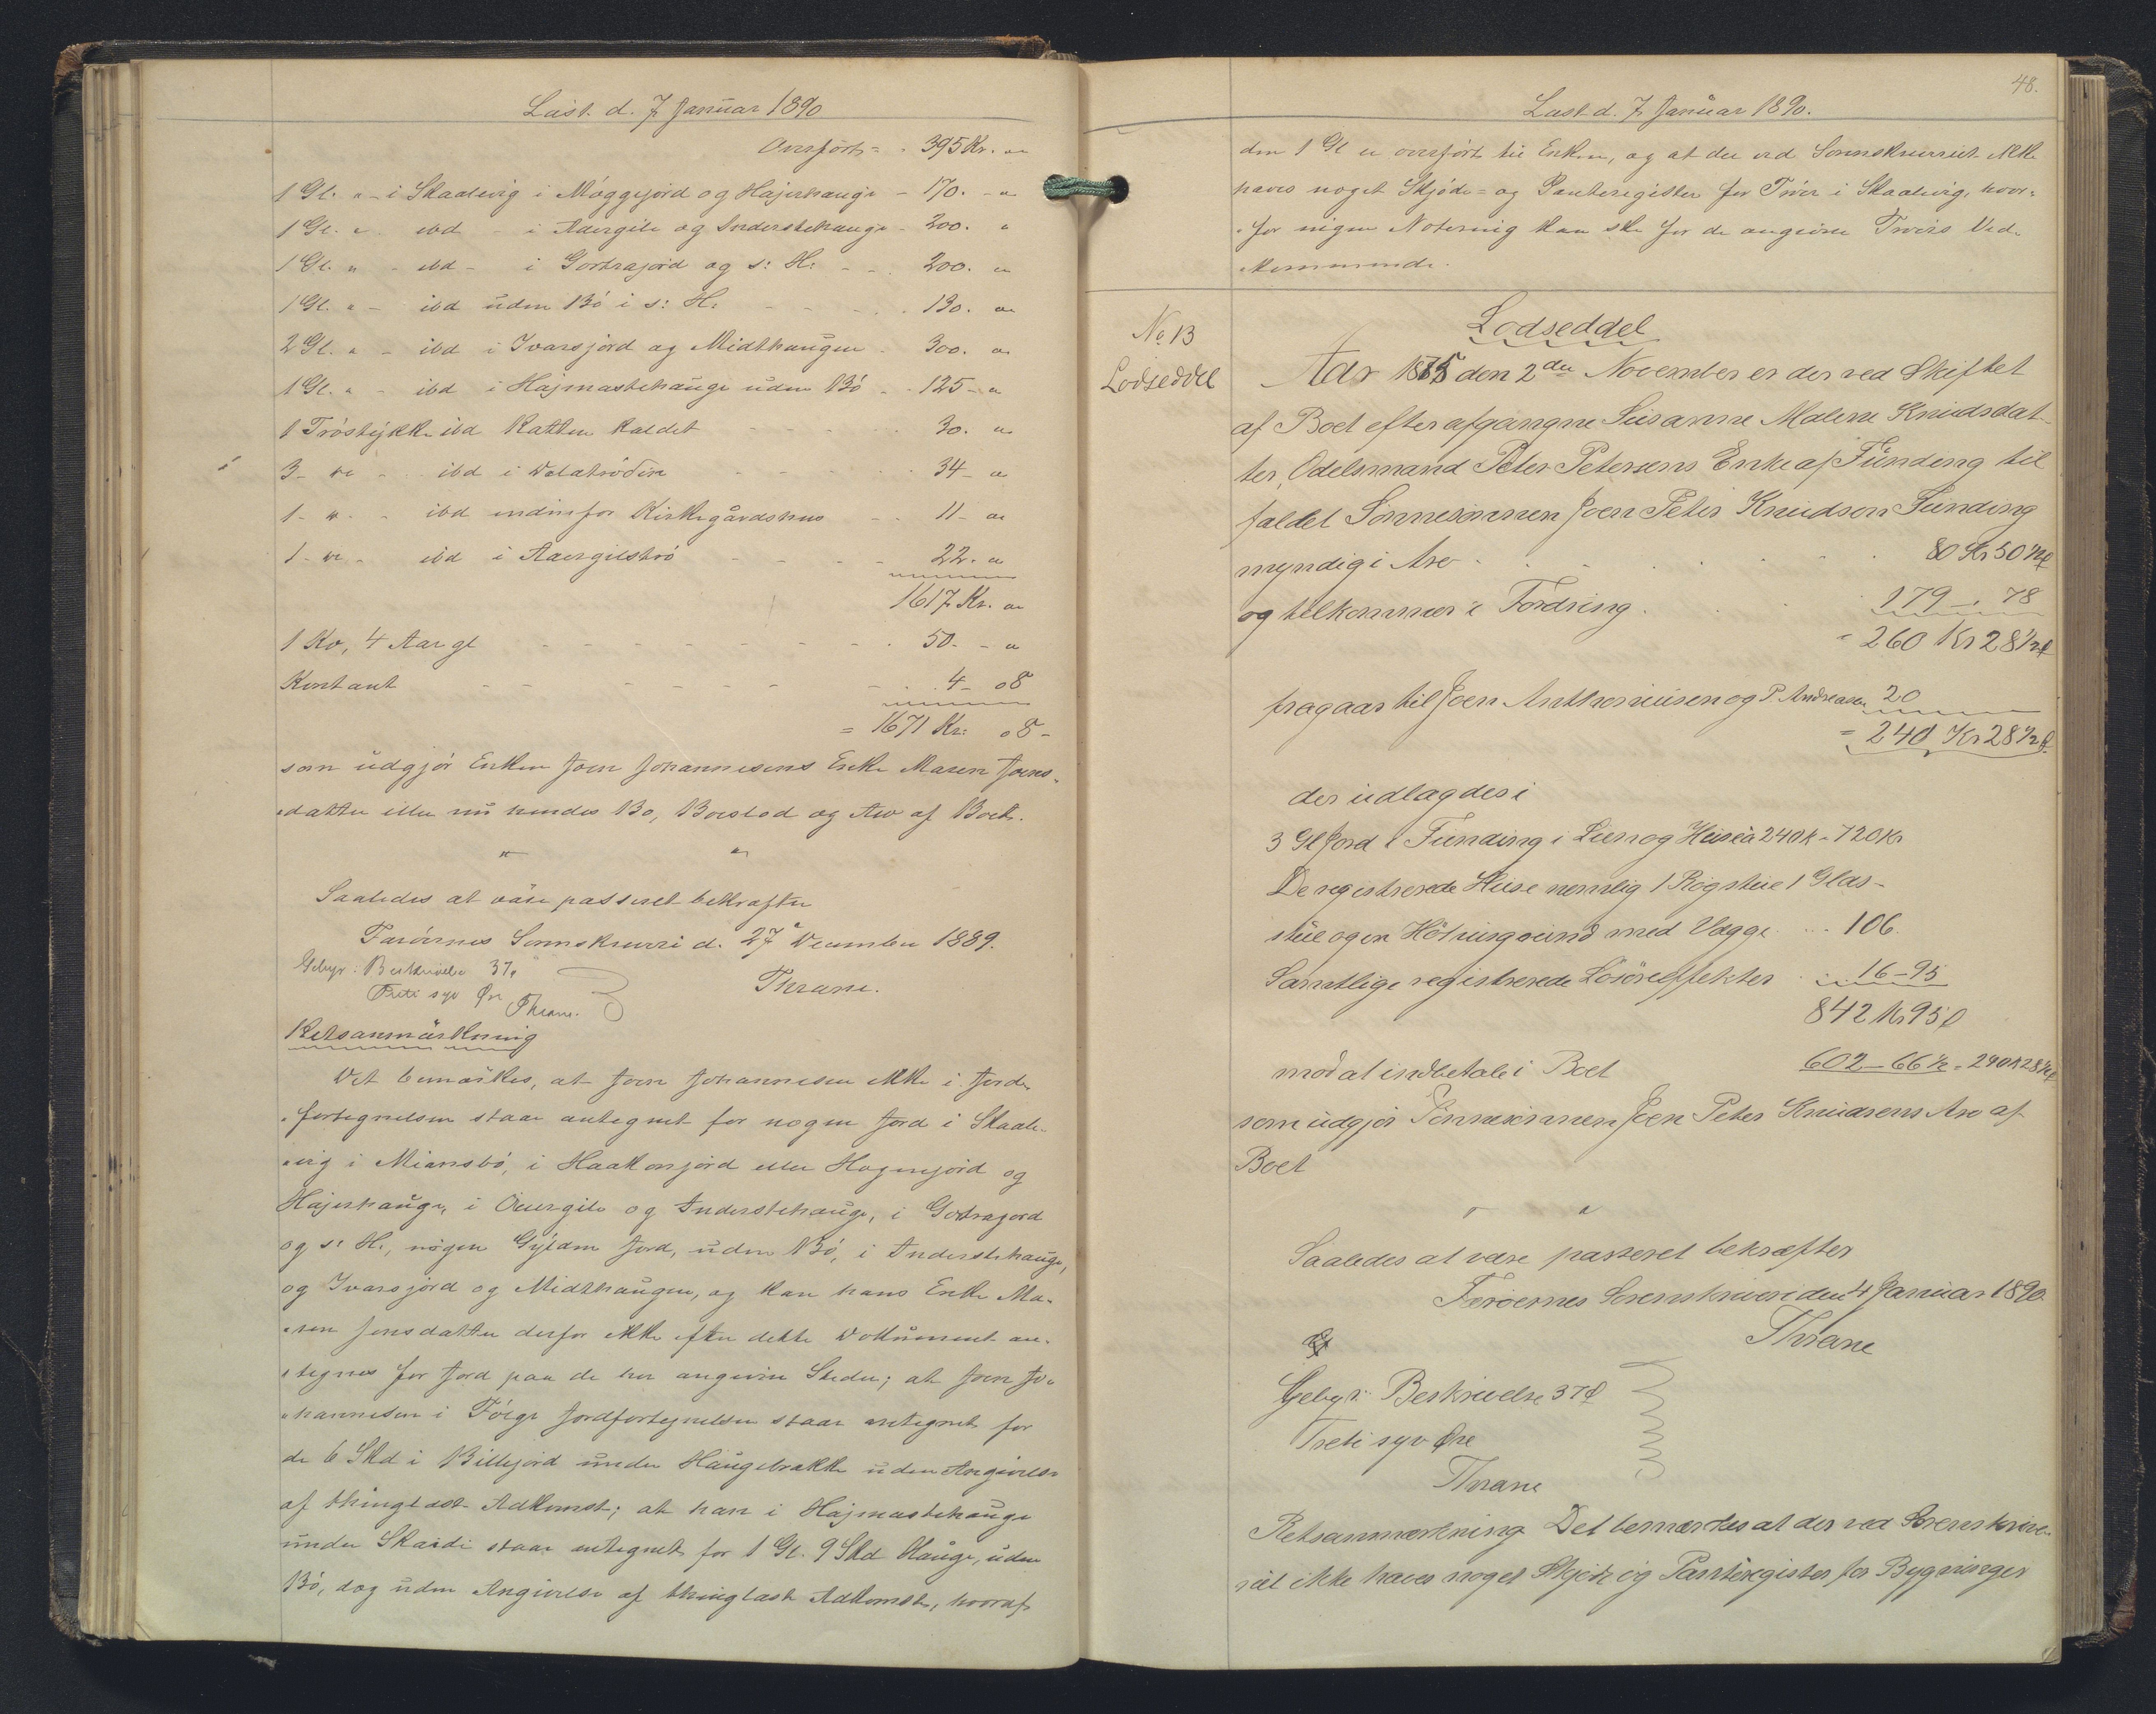 Läst d. 7 Januar 1890
Overført = 395 Kr. "
1 Gl. " - i Skaalevig i Møggejord og Højeshauge - 170. - "
1 Gl. " - ibd - i Aaergile og Inderstehauge - 200. "
1 Gl. " - ibd - i Gortrajord og s: H: - - 200. "
1 Gl. " - ibd uden Bø i s: H: - - - 130. "
2 Gl. " - ibd i Ivarsjord og Midthaugen - 300. "
1 Gl. " - ibd i Højmastehauge uden Bø - - 125 - "
1 Trøstykke ibd Katten kaldet - - - - 30. "
3 - " - ibd i - - - - 34 - "
1 - " - ibd indenfor Kirkegårdshus - - 11 - "
1 - " - ibd i Aaergilstrø - - - 22. "
1617 Kr. "
1 Ko, 4 Aar gl - - - - - - - 50. - "
Kontant - - - - - - - 4 - 08
= 1671 Kr: 08 -
som udgjør Enken Joen Johannesens Enke Maren Joens-
datter eller nu hendes Bo, Boeslod og Arv af Boet.
" "
Saaledes at väre passeret bekräfter
Färøernes Sorenskriveri d. 27 December 1889.
Gebyr: Beskrivelse 37ø
Treti syv Øre
Thrane. Thrane.
Retsanmärkning
Det bemärkes, at Joen Johannesen ikke i Jorde-
fortegnelsen staar antegnet for nogen Jord i Skaale-
vig i Miansbø, i Haakonjord eller Hogenjord og
Højeshauge, i Aaergile og Inderstehauge, i Gotrajord
og s: H:, nogen Gylden Jord, uden Bø, i Inderstehauge,
og Ivarsjord og Midthaugen, og kan hans Enke Ma-
ren Jonsdatter derfor ikke efter dette Dokument an-
tegnes for Jord paa de her angivne Steder; at Joen Jo-
hannesen i Følge Jordfortegnelsen staar antegnet for
de 6 Skd i Billejord under Haugebrakke uden Angivelse
af thinglæst Adkomst; at han i Højmastehauge
under Skardi staar antegnet for 1 Gl. 9 Skd Hauge, uden
Bø, dog uden Angivelse af thinglæst Adkomst, hvoraf
48.
Läst d. 7 Januar 1890.
den 1 Gl er overført til Enken, og at der ved Sorenskriveriet ikke
haves noget Skjøde- og Panteregister for Trøer i Skaalevig, hvor-
for ingen Notering kan ske for de angivne Trøers Ved-
kommende.
No 13
Lodseddel
Lodseddel
Aar 1875 den 2den November er der ved Skiftet
af Boet efter afgangne Susanne Malene Knudsdat-
ter, Odelsmand Peter Petersens Enke af Funding til
faldet Sønnesønnen Joen Peter Knudsen Funding
myndig i Arv - - - - 80 Kr 50 ½ ø
og tilkommer i Fordring - - 179 - . 78
= 260 Kr 28 ½ ø
fragaar til Joen Anthoniusen og P. Andreasen 20
= 240 Kr 28 ½ ø
der udlagdes i
3 Gl Jord i Funding i Lien og Husa à 240 K - 720 Kr
De registrerede Huse nemlig 1 Røgstue 1 Glas-
stue og en med Vægge - - - 106.
Samtlige registrerede Løsøreffekter - - 16 - 95
842 Kr 95 ø
mod at indbetale i Boet 602 - 66 ½ = 240 K 28 ½ ø
som udgjør Sønnesønnen Joen Peter Knudsens Arv af
Boet
" "
Saaledes at være passeret bekræfter
Færøernes Sorenskriveri den 4 Januar 1890.
Thrane
Gebyr: Beskrivelse 37 ø
Treti syv Øre
Thrane
Retsanmærkning Det bemærkes at der ved Sorenskrive-
riet ikke haves noget Skjøde og Panteregister for Bygninger